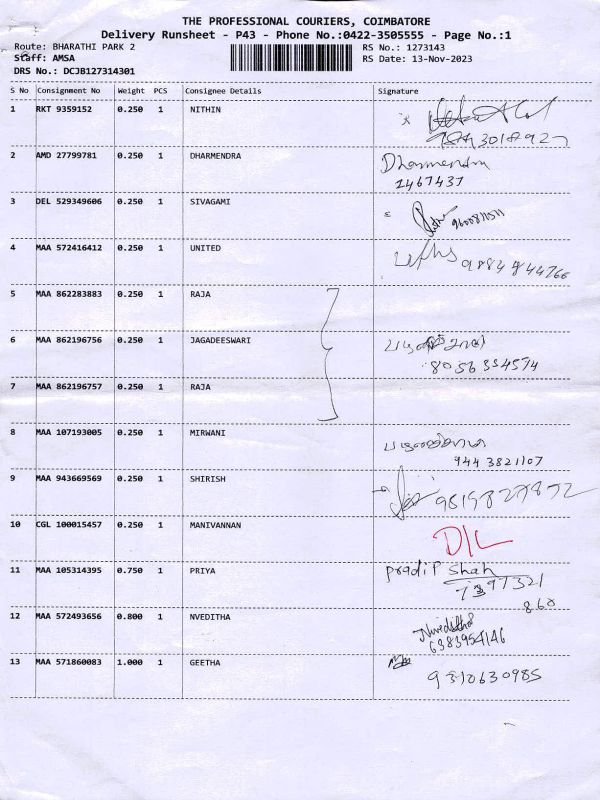 THE PROFESSIONAL COURIERS, COIMBATORE
Delivery Runsheet - P43 - Phone No.:0422-3505555 - Page No.:1
Route: BHARATHI PARK 2
RS No.: 1273143
Staff: AMSA
RS Date: 13-Nov-2023
DRS No.: DCJB127314301
S No Consignment No Weight PCS Consignee Details Signature
1 RKT 9359152 0.250 1 NITHIN
2 AMD 27799781 0.250 1 DHARMENDRA Dharmendra
2467437
3 DEL 529349606 0.250 1 SIVAGAMI
9600811511
4 MAA 572416412 0.250 1 UNITED
9884844766
5 MAA 862283883 0.250 1 RAJA
6 MAA 862196756 0.250 1 JAGADEESWARI
8056334574
7 MAA 862196757 0.250 1 RAJA
8 MAA 107193005 0.250 1 MIRWANI
9443821107
9 MAA 943669569 0.250 1 SHIRISH
9819827872
10 CGL 100015457 0.250 1 MANIVANNAN D/L
11 MAA 105314395 0.750 1 PRIYA pradiP Shah
7397321
860
12 MAA 572493656 0.800 1 NVEDITHA Nveditha
6383954146
13 MAA 571860083 1.000 1 GEETHA
9310630985